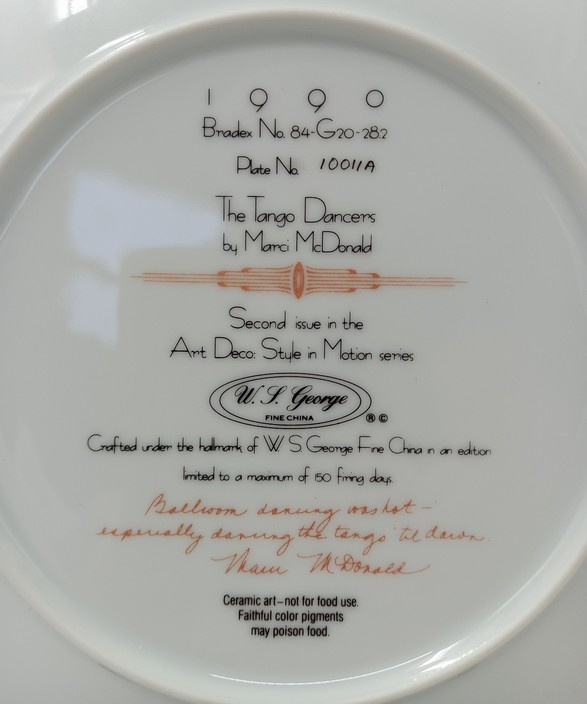 1990
Bradex No. 84-G20-28.2
Plate No. 10011A
The Tango Dancers
by Marci McDonald
Second issue in the
Art Deco: Style in Motion series
W. S. George
FINE CHINA
® ©
Crafted under the hallmark of W S George Fine China in an edition
limited to a maximum of 150 firing days.
Ballroom dancing was hot –
especially dancing the tango 'til dawn.
Marci McDonald
Ceramic art–not for food use.
Faithful color pigments
may poison food.